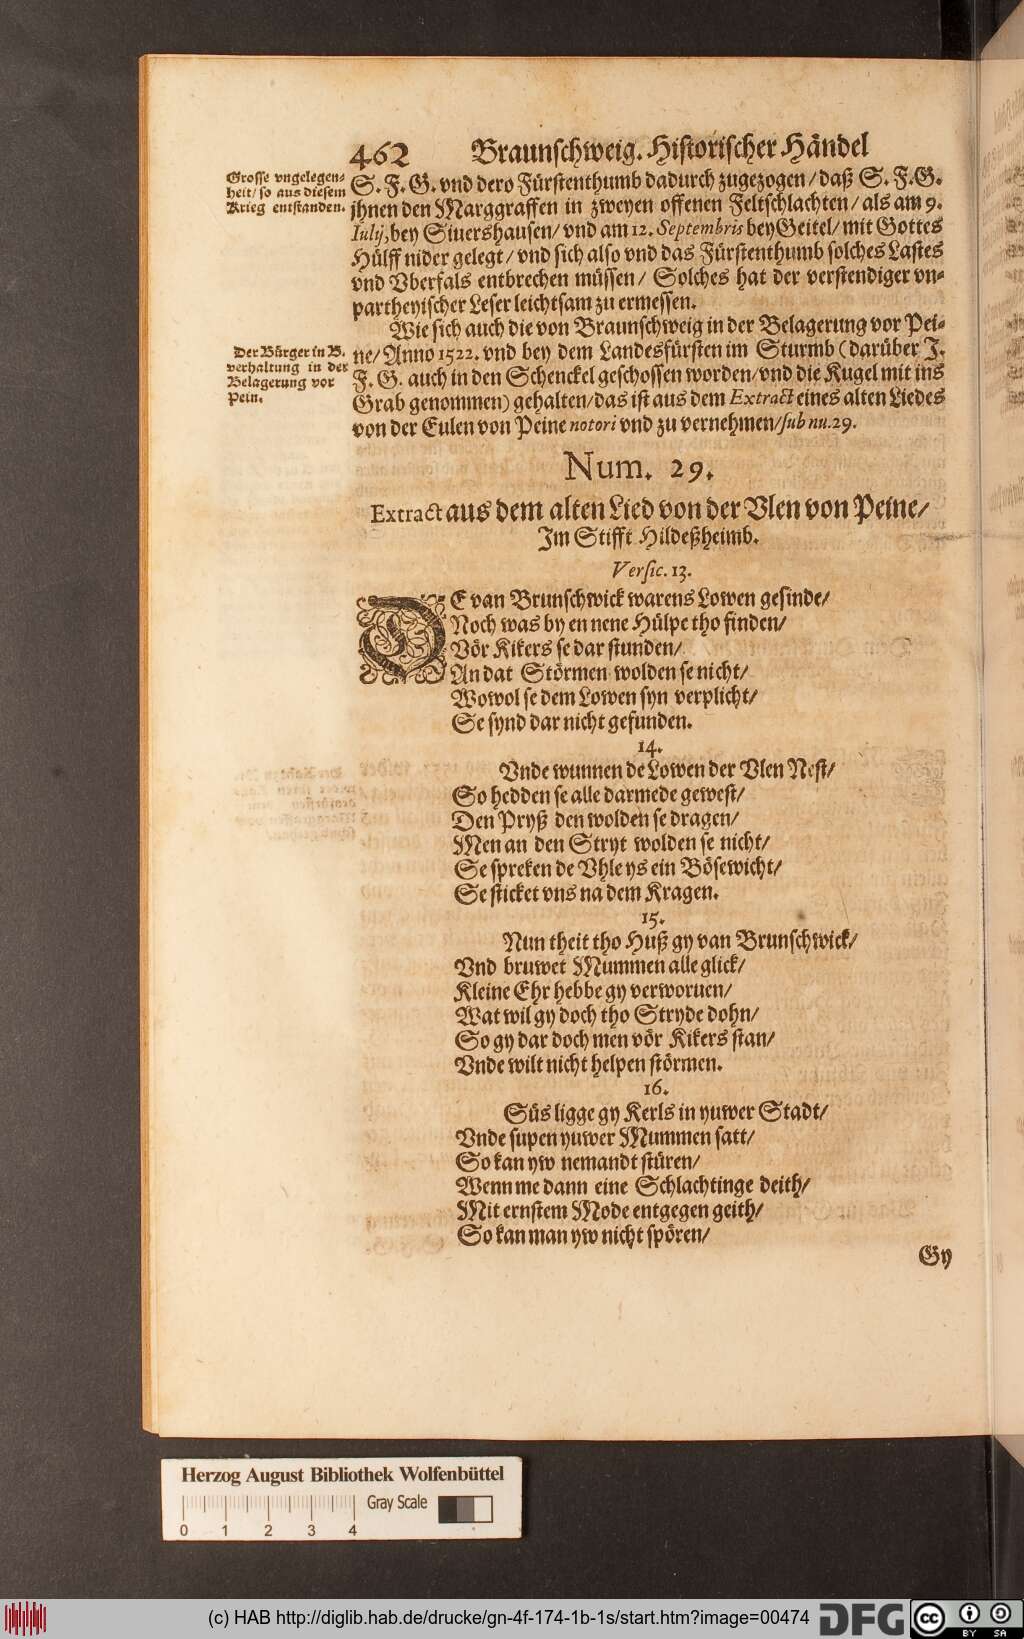 462 Braunschweig. Historischer Händel
Grosse vngelegen-
heit/ so aus diesem
Krieg entstanden.
S. F. G. vnd dero Fürstenthumb dadurch zugezogen/ daß S. F. G.
jhnen den Marggraffen in zweyen offenen Feltschlachten/ als am 9.
Iulij, bey Siuershausen/ vnd am 12. Septembris bey Geitel/ mit Gottes
Hülff nider gelegt/ vnd sich also vnd das Fürstenthumb solches Lastes
vnd Vberfals entbrechen müssen/ Solches hat der verstendiger vn-
partheyischer Leser leichtsam zu ermessen.
Der Bürger in B.
verhaltung in der
Belagerung vor
Pein.
Wie sich auch die von Braunschweig in der Belagerung vor Pei-
ne/ Anno 1522. vnd bey dem Landesfürsten im Sturmb (darüber J.
F. G. auch in den Schenckel geschossen worden/ vnd die Kugel mit ins
Grab genommen) gehalten/ das ist aus dem Extract eines alten Liedes
von der Eulen von Peine notori vnd zu vernehmen/ sub nu. 29.
Num. 29.
Extract aus dem alten Lied von der Vlen von Peine/
Im Stifft Hildeßheimb.
Versic. 13.
DE van Brunschwick warens Lowen gesinde/
Noch was by en nene Hülpe tho finden/
Vör Kikers se dar stunden/
An dat Störmen wolden se nicht/
Wowol se dem Lowen syn verplicht/
Se synd dar nicht gefunden.
14.
Vnde wunnen de Lowen der Vlen Nest/
So hedden se alle darmede gewest/
Den Pryß den wolden se dragen/
Men an den Stryt wolden se nicht/
Se spreken de Vhle ys ein Bösewicht/
Se sticket vns na dem Kragen.
15.
Nun theit tho Huß gy van Brunschwick/
Vnd bruwet Mummen alle glick/
Kleine Ehr hebbe gy verworuen/
Wat wil gy doch tho Stryde dohn/
So gy dar doch men vör Kikers stan/
Vnde wilt nicht helpen störmen.
16.
Süs ligge gy Kerls in yuwer Stadt/
Vnde supen yuwer Mummen satt/
So kan yw nemandt stüren/
Wenn me dann eine Schlachtinge deith/
Mit ernstem Mode entgegen geith/
So kan man yw nicht spören/
Gy
Herzog August Bibliothek Wolfenbüttel
Gray Scale
0 1 2 3 4
(c) HAB http://diglib.hab.de/drucke/gn-4f-174-1b-1s/start.htm?image=00474 DFG cc BY SA